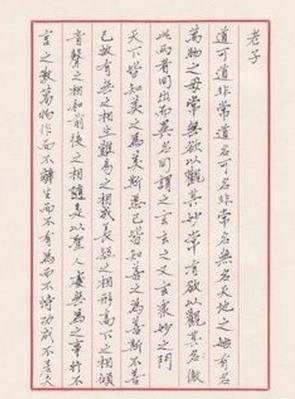 老子
道可道非常道名可名非常名無名天地之始有名
萬物之母常無欲以觀其妙常有欲以觀其徼
此兩者同出而異名同謂之玄玄之又玄衆妙之門
天下皆知美之為美斯惡已皆知善之為善斯不善
已故有無之相生難易之相成長短之相形高下之相傾
音聲之相和前後之相隨是以聖人處無為之事行不
言之教萬物作而不辭生而不有為而不恃功成不居夫